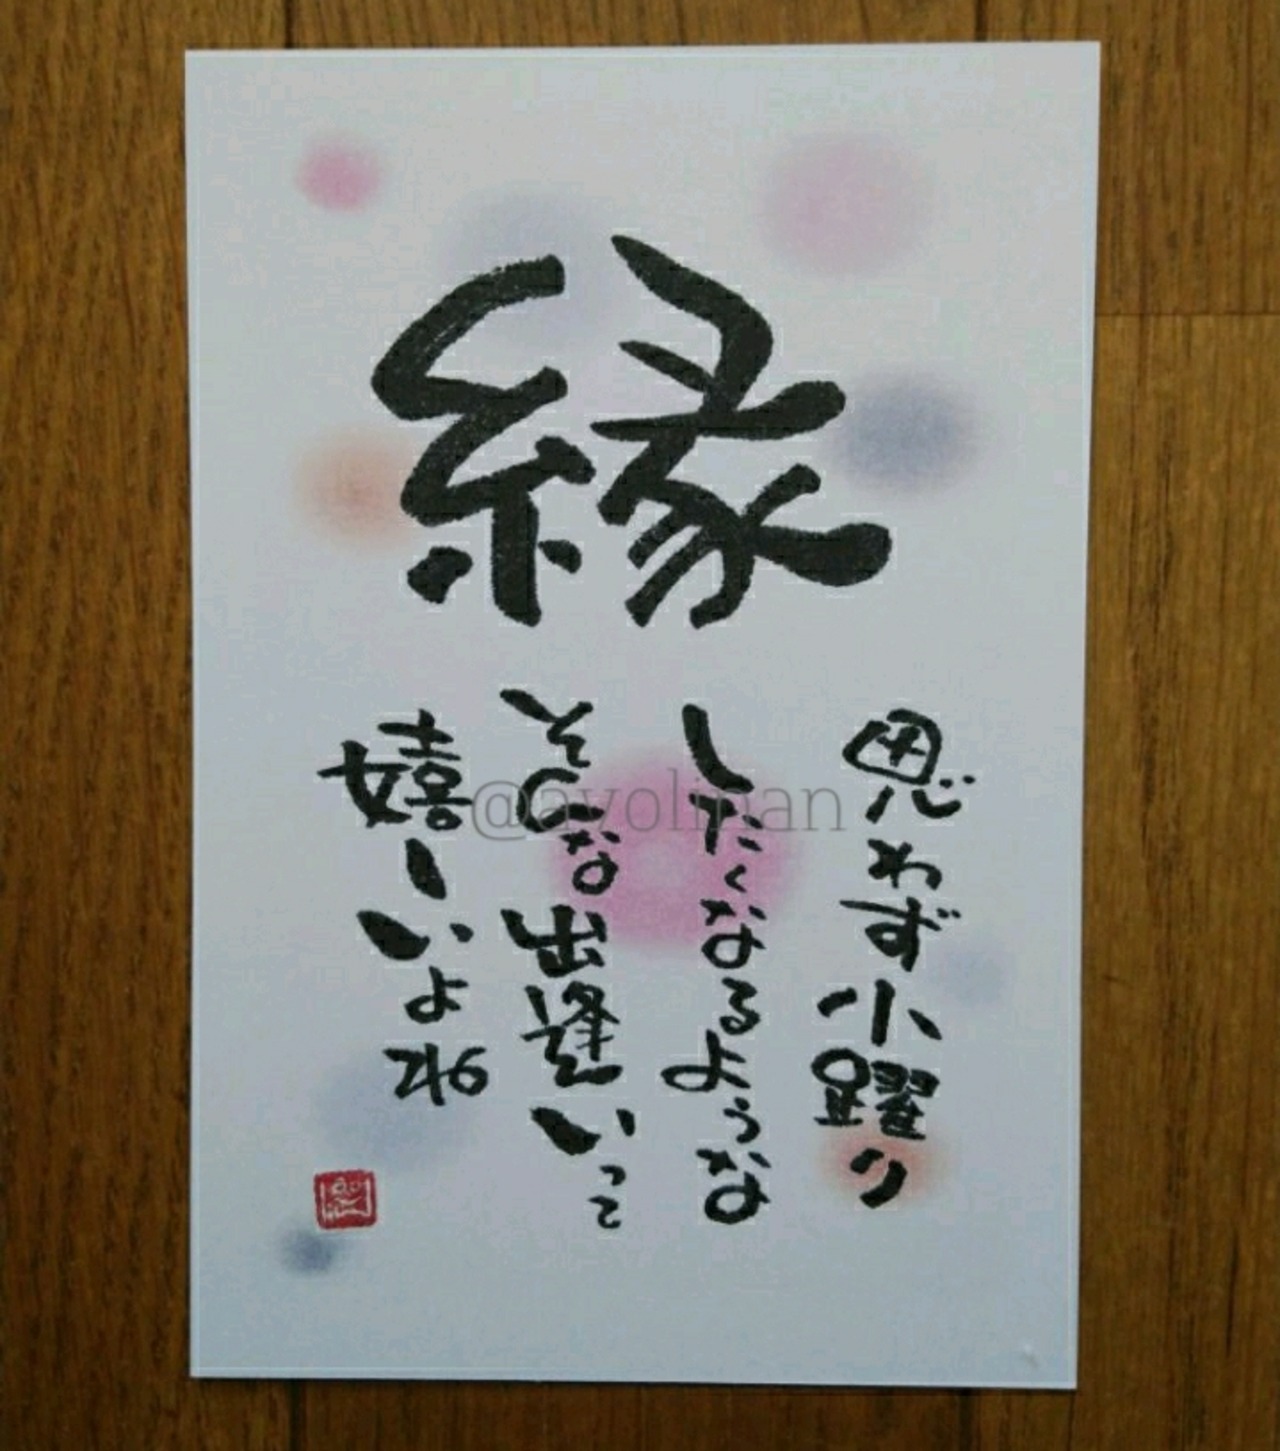 縁
思わず小躍り
したくなるような
そんな出逢いって
嬉しいよね
@ayolinan